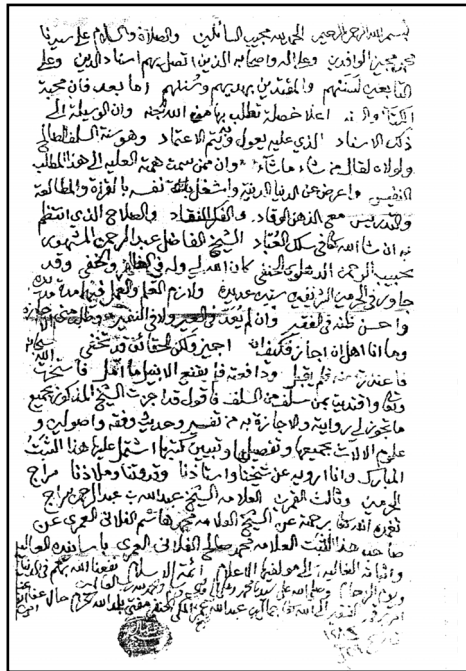 بسم الله الرحمن الرحيم الحمد لله مجيب السائلين والصلاة والسلام على سيدنا
محمد مجيز الوافدين وعلى اله واصحابه الذين اتصل بهم اسناد الدين وعلى
التابعين لسنتهم والمقتدين بهديهم وسنتهم اما بعد فان محبة
الكتاب والسنة اعلا خصلة تطلب بها من الله الجنه وان الوسيلة الى
ذلك الاسناد الذي عليه يعول وبه يتم الاعتماد وهو سنة السلف الصالح
ولولاه لقال من شاء ما شاء وان ممن سمت همته العليه الى هذا المطلب
النفيس واعرض عن الدنيا الدنية واشغل نفسه بالقراءة والمطالعة
والتدريس مع الذهن الوقاد والفكر النقاد والصلاح الذي انتظم
به ان شاء الله تعالى في سلك العباد الشيخ الفاضل عبد الرحمن المشهور
بحبيب الرحمن الحنفي كان الله له وله في الظاهر والخفي وقد
جاور في الحرمين الشريفين سنين عديدة ولازم العلم والعمل فيها مدة مديدة
واحسن ظنه في الفقير وان لم يعد في العير ولا في النفير وطلب مني
وما انا اهل ان اجاز فكيف ان اجيز ولكن الحقائق قد تخفى
فاعتذرت منه فلم يقبل ودافعته فلم يقنع
واقتديت بمن سلف من السلف فاقول قد اجزت الشيخ المذكور بجميع
ما تجوز لي روايته والاجازة به من تفسير وحديث وفقه واصوله و
علوم الالات بجميعها وتفصيلها وتبيين كتبها اشتمل عليها هذا الثبت
المبارك وانا ارويه عن شيخنا واستاذنا وقدوتنا وملاذنا سراج
الحرمين وثالث القمرين العلامه الشيخ عبد الله بن عبد الرحمن سراج
تغمده الله تعالى برحمته عن الشيخ العلامه محمد هاشم الفلاني العمري عن
صاحب هذا الثبت العلامه محمد صالح الفلاني العمري باسانيده العالية
الى مولفيها الاعلام ائمة الاسلام نفعنا الله بهم في الدنيا
ويوم الزحام وصلى الله على سيدنا محمد وعلى اله وصحبه